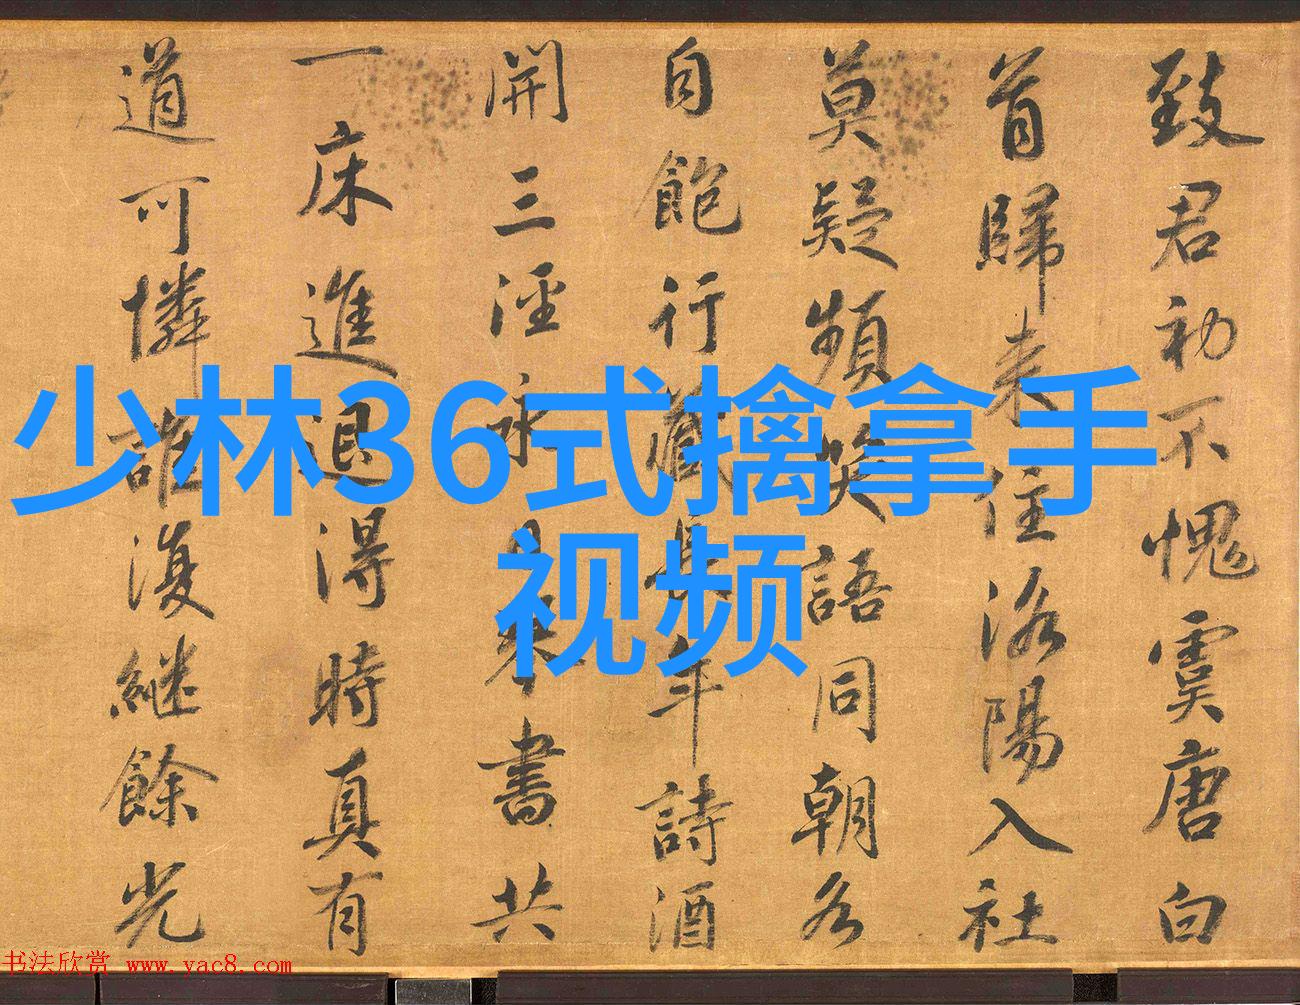 少林36式擒拿手
视频
致君初不愧虞唐白
首歸来住洛陽入社
莫疑頻笑語同朝各
自飽行藏長年詩酒
開三涇永日琴書共
一床進退得時真有
道可憐誰復継餘光
书法欣赏 www.yac8.com